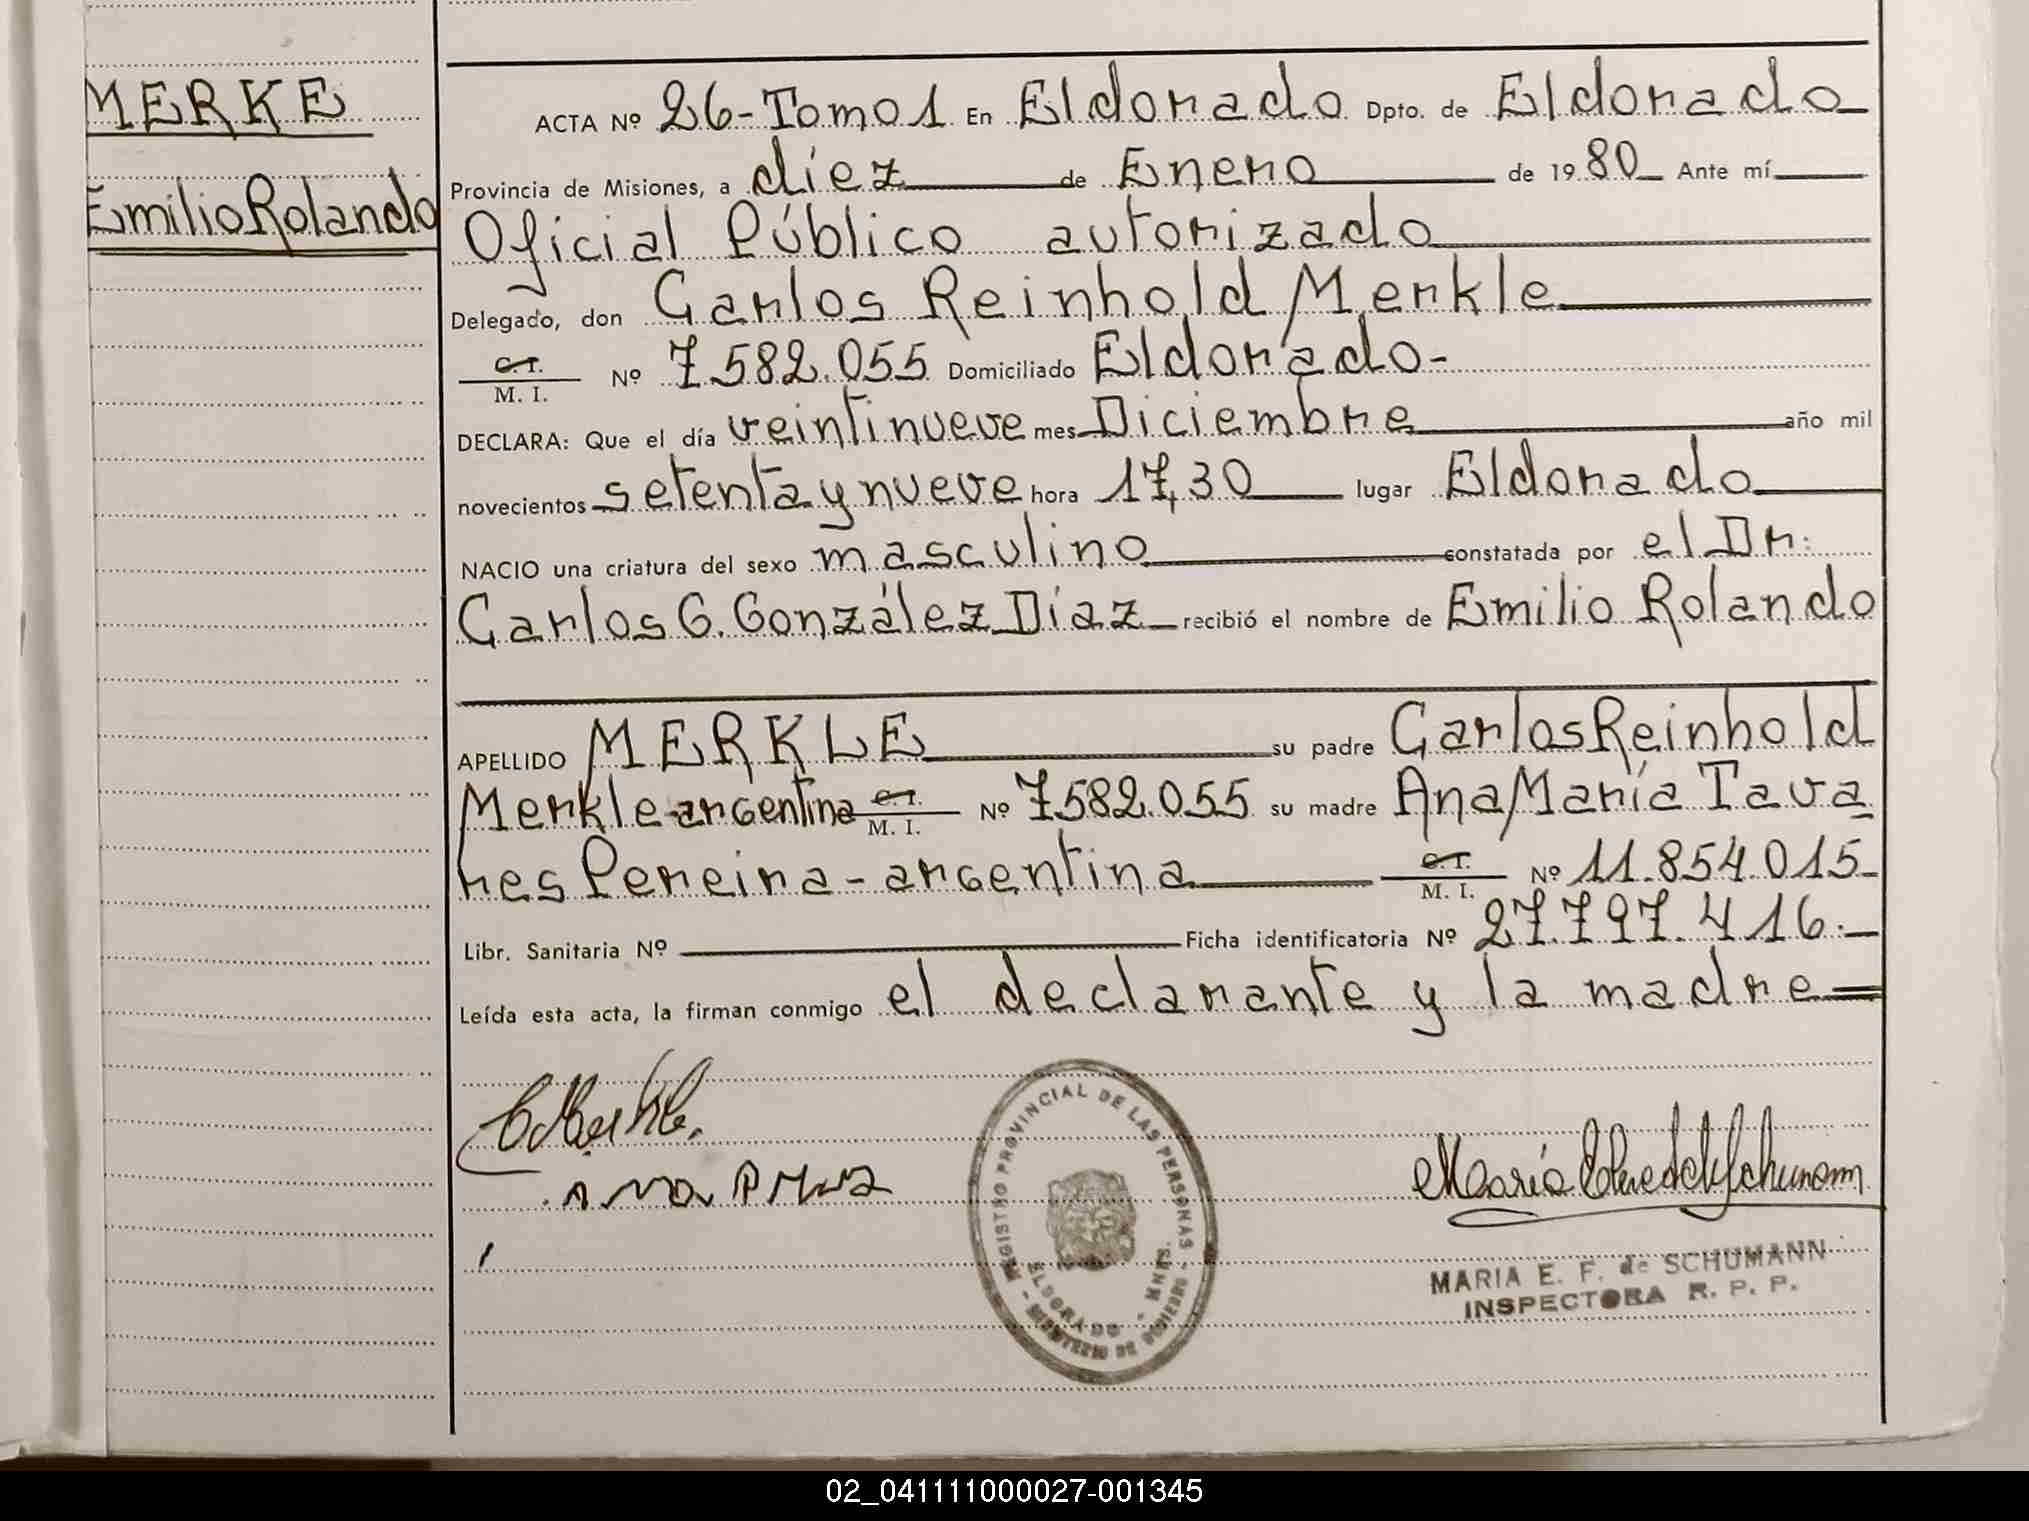 MERKE
Emilio Rolando
ACTA Nº 26-Tomo 1 En Eldorado Dpto. de Eldorado
Provincia de Misiones, a diez de Enero de 1980 Ante mí
Oficial Público autorizado
Delegado, don Carlos Reinhold Merkle
C.I.
M. I. Nº 7.582.055 Domiciliado Eldorado-
DECLARA: Que el día veintinueve mes Diciembre año mil
novecientos setenta y nueve hora 17,30 lugar Eldorado
NACIO una criatura del sexo masculino constatada por el Dr.
Carlos G. González Díaz recibió el nombre de Emilio Rolando
APELLIDO MERKLE su padre Carlos Reinhold
Merkle-argentina C.I.
M. I. Nº 7.582.055 su madre Ana María Tava
res Pereira-argentina C.I.
M. I. Nº 11.854.015-
Libr. Sanitaria Nº Ficha identificatoria Nº 27.797.416.-
Leída esta acta, la firman conmigo el declarante y la madre=
CMerkle.
REGISTRO PROVINCIAL DE LAS PERSONAS - MINISTERIO DE GOBIERNO -
ELDORADO - MNES.
MARIA E. F. de SCHUMANN
INSPECTORA R. P. P.
02_041111000027-001345